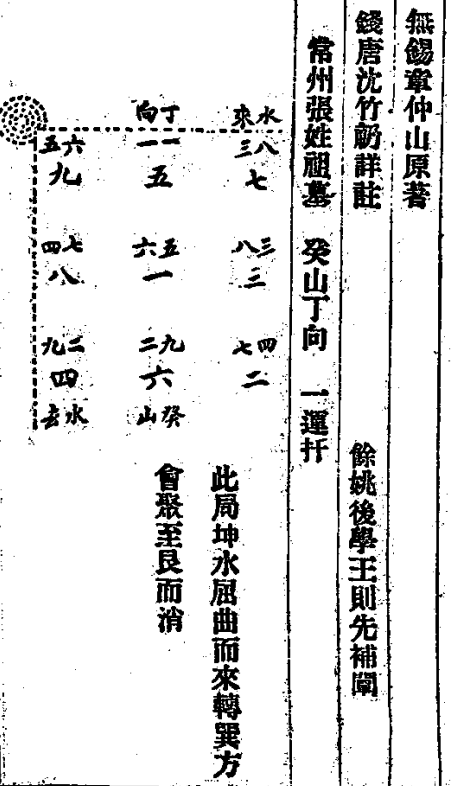 無錫章仲山原著
錢唐沈竹礽詳註
餘姚後學王則先補闡
常州張姓祖墓 癸山丁向 一運扦
水來 丁向
八三 一一 六五
七 五 九
三八 五六 七四
三 一 八
四七 九二 二九
二 六 四
癸山 水去
此局坤水屈曲而來轉巽方
會聚至艮而消